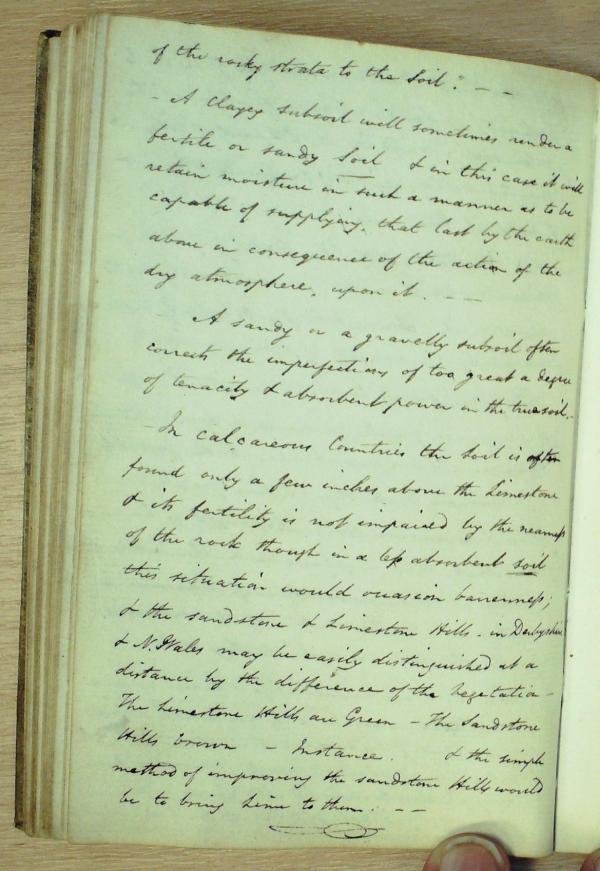 of the rocky strata to the Soil. — —
- A Clayey subsoil will sometimes render a
fertile or sandy Soil & in this case it will
retain moisture in such a manner as to be
capable of supplying that lost by the earth
above in consequence of the action of the
dry atmosphere, upon it. — —
A sandy or a gravelly subsoil often
corrects the imperfections of too great a degree
of tenacity & absorbent power in the true soil.-
- In calcareous Countries the Soil is often
found only a few inches above the Limestone
& its fertility is not impaired by the nearness
of the rock though in a less absorbent soil
this situation would occasion barrenness;
& the sandstone & Limestone Hills - in Derbyshire
& N. Wales may be easily distinguished at a
distance by the difference of the Vegetation -
The Limestone Hills are Green - The Sandstone
Hills brown - Instance. & the simple
method of improving the sandstone Hills would
be to bring Lime to them. — —